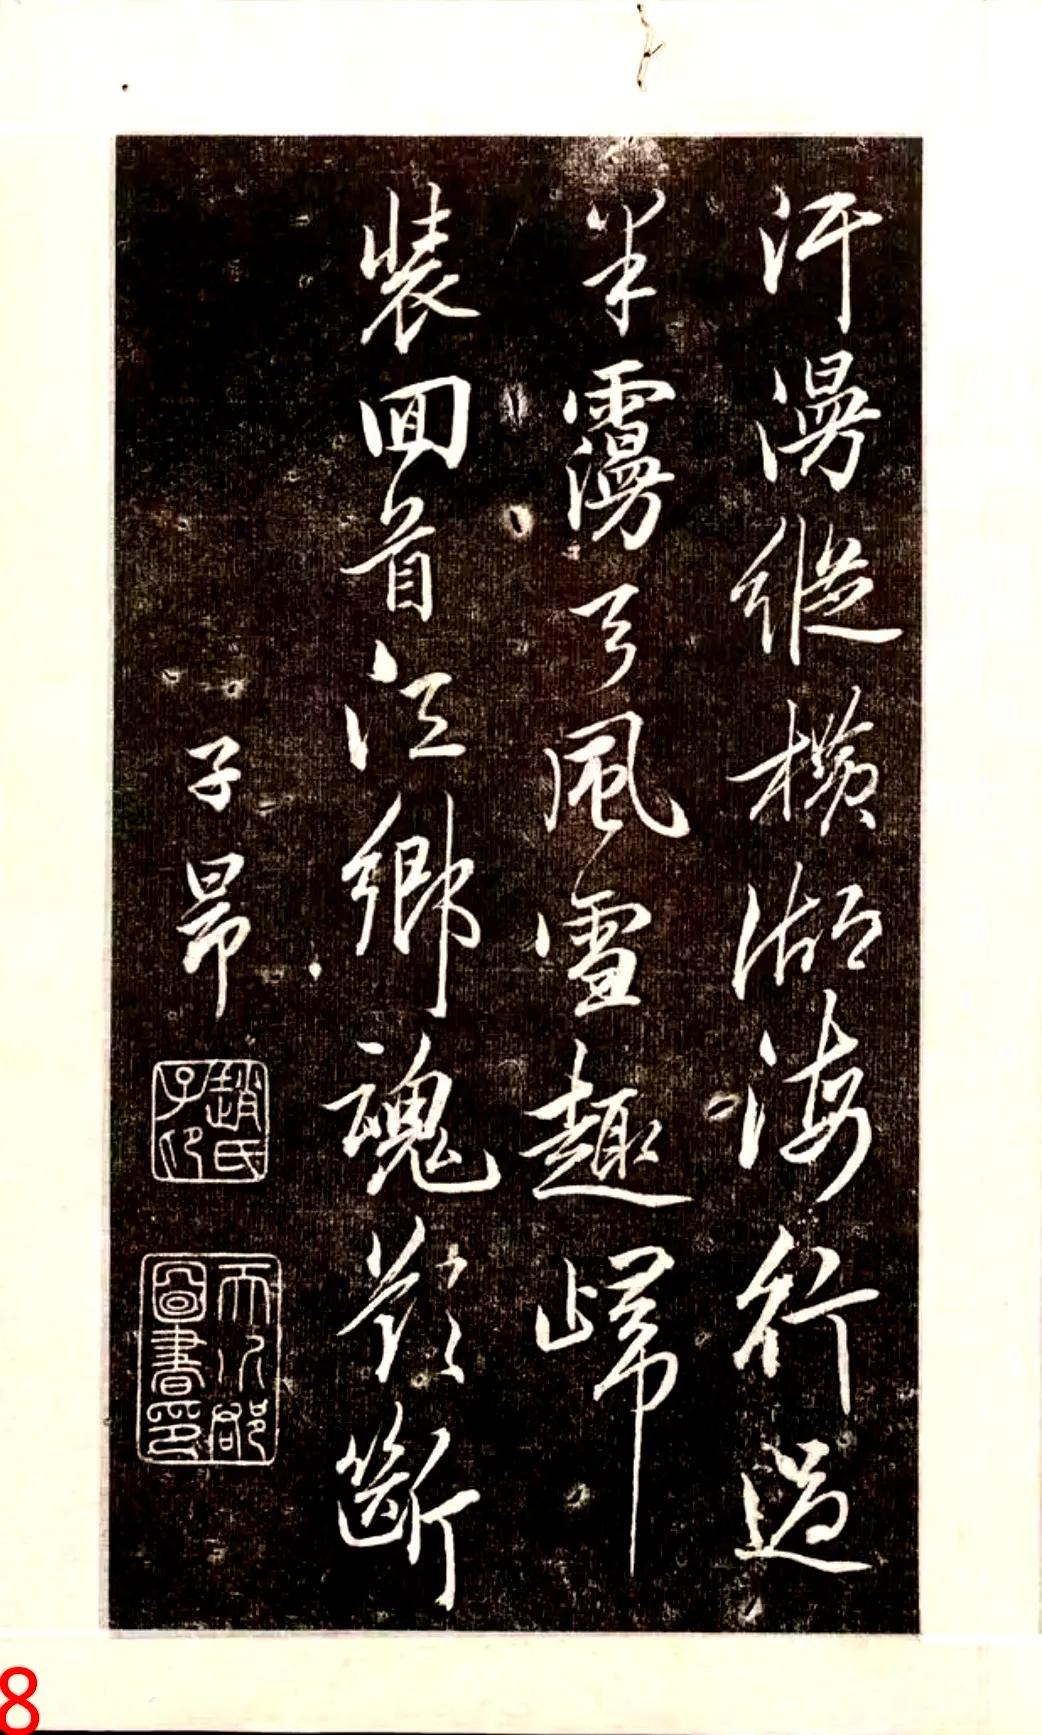 汗漫縱橫湖海行過
半風雪趣歸
裝回首江鄉魂欲斷
子昂
趙氏子印
天水郡圖書印